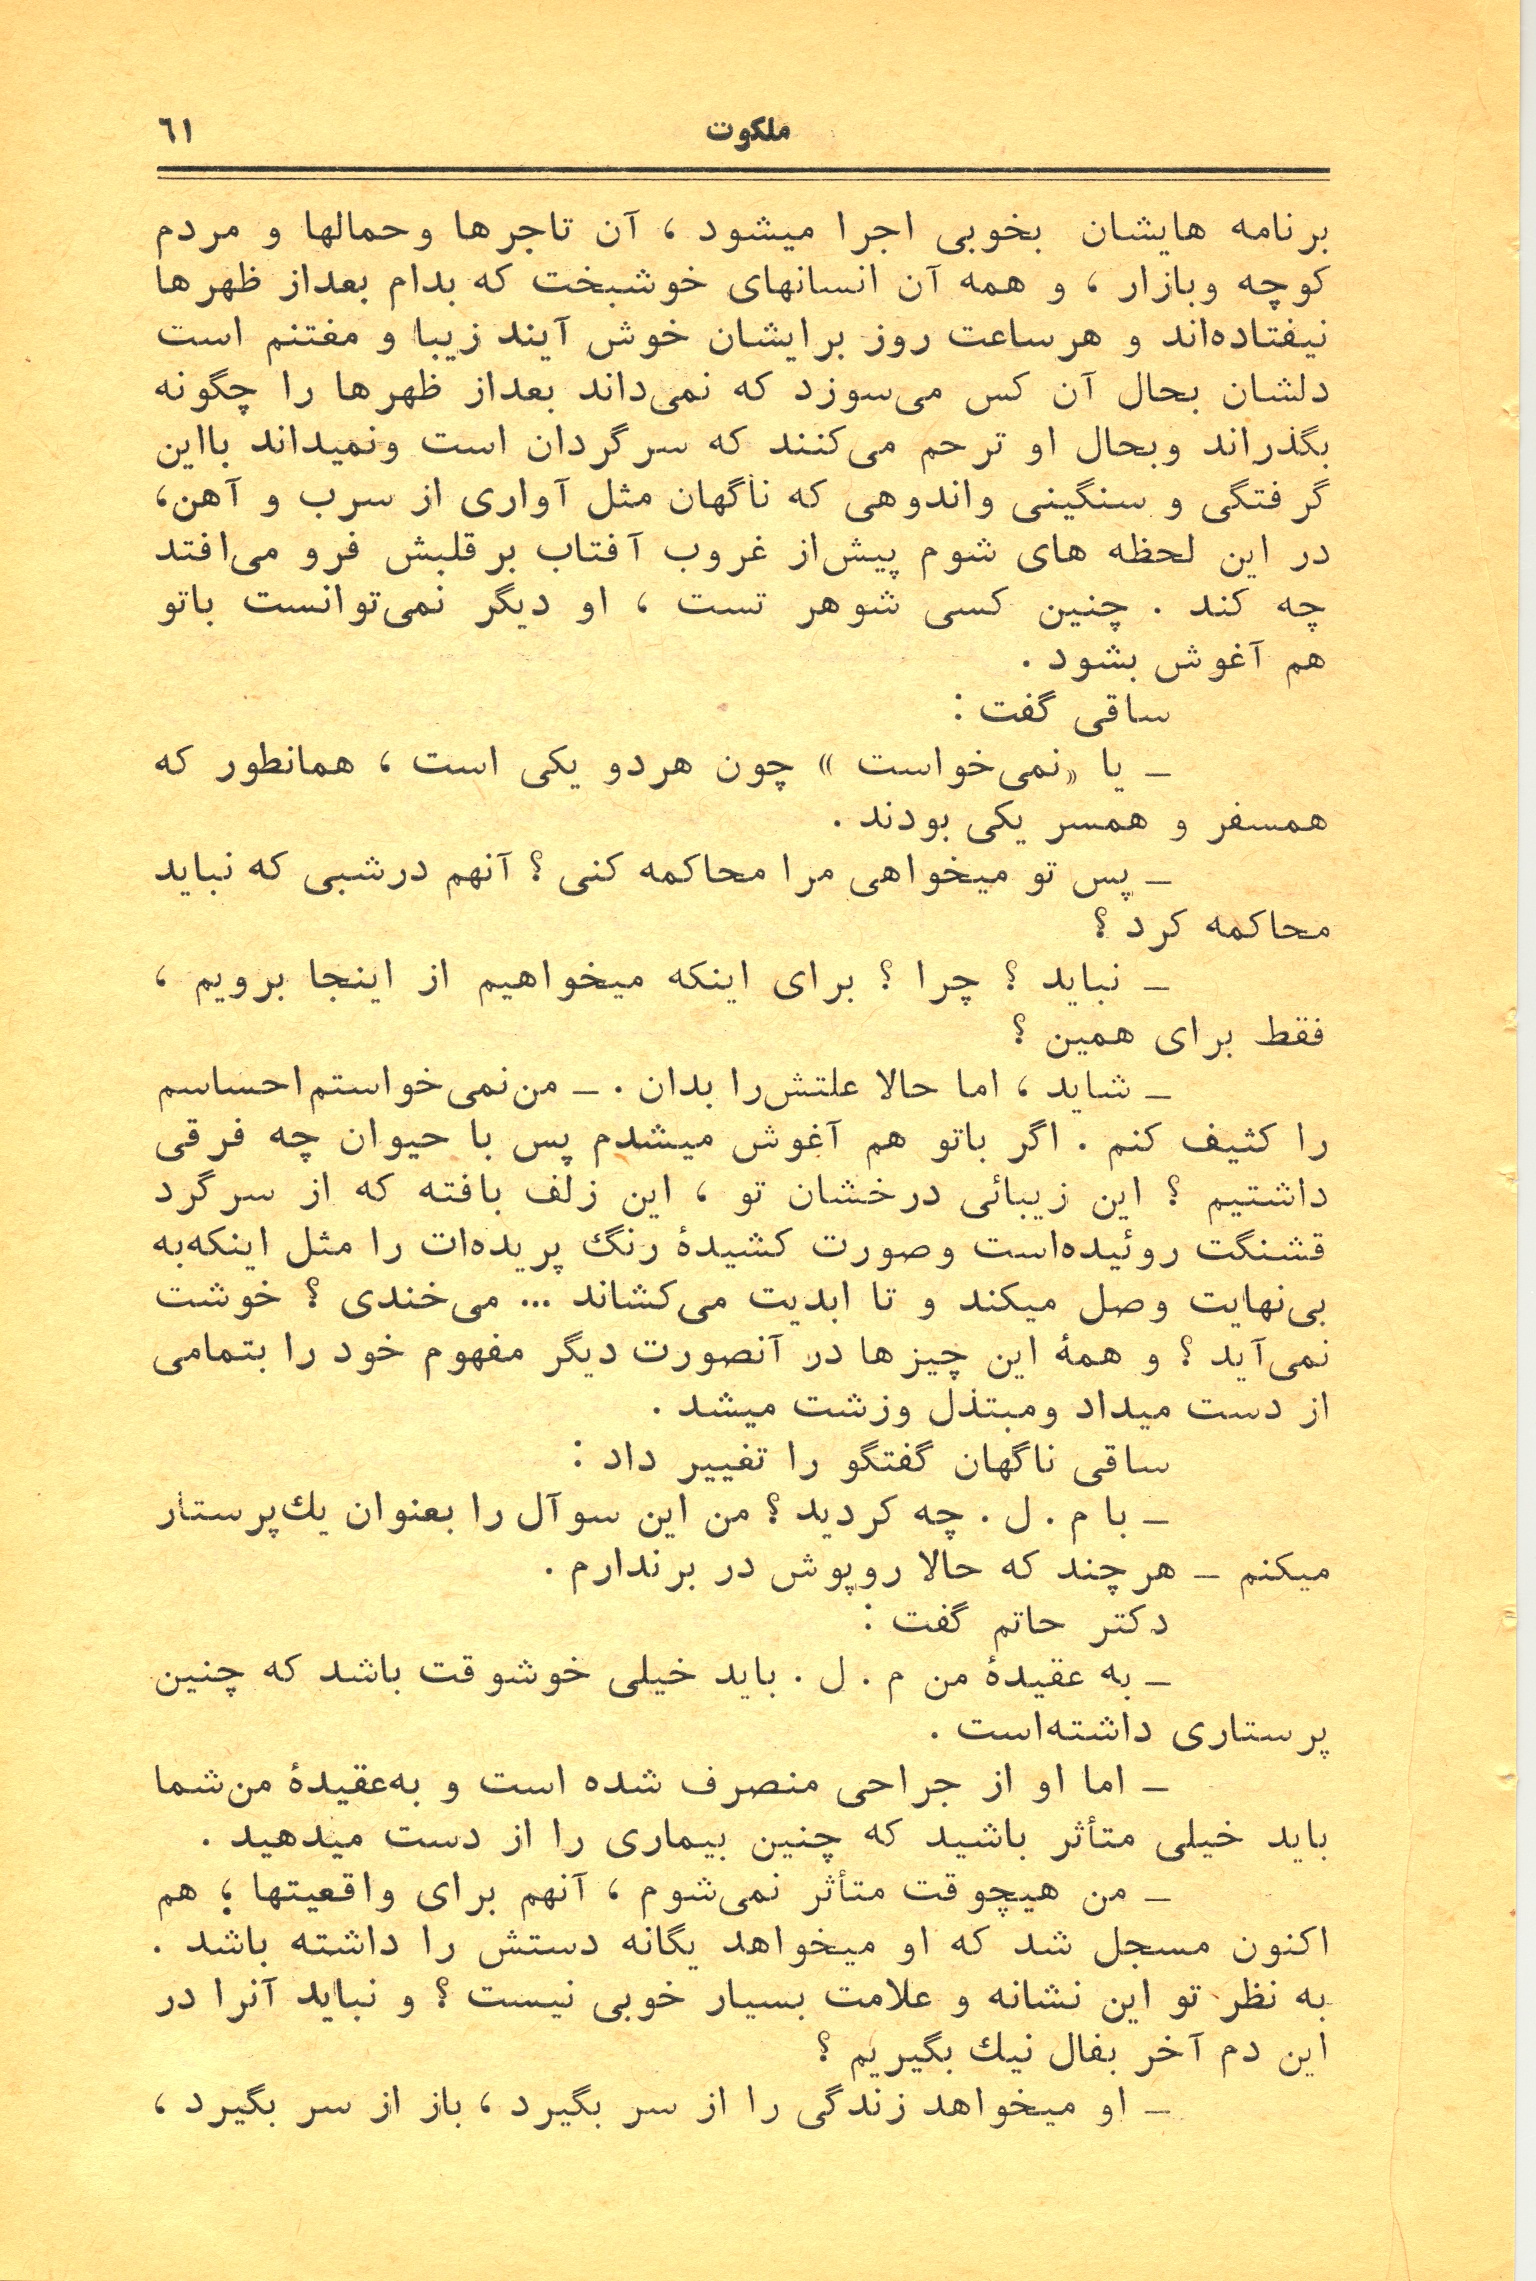 ملکوت
٦١
برنامه هایشان بخوبی اجرا میشود ، آن تاجرها وحمالها و مردم
کوچه وبازار ، و همه آن انسانهای خوشبخت که بدام بعداز ظهرها
نیفتاده‌اند و هرساعت روز برایشان خوش آیند زیبا و مفتنم است
دلشان بحال آن کس می‌سوزد که نمی‌داند بعداز ظهرها را چگونه
بگذراند وبحال او ترحم می‌کنند که سرگردان است ونمیداند بااین
گرفتگی و سنگینی واندوهی که ناگهان مثل آواری از سرب و آهن،
در این لحظه های شوم پیش‌از غروب آفتاب برقلبش فرو می‌افتد
چه کند . چنین کسی شوهر تست ، او دیگر نمی‌توانست باتو
هم آغوش بشود .
ساقی گفت :
ــ یا «نمی‌خواست » چون هردو یکی است ، همانطور که
همسفر و همسر یکی بودند .
ــ پس تو میخواهی مرا محاکمه کنی ؟ آنهم درشبی که نباید
محاکمه کرد ؟
ــ نباید ؟ چرا ؟ برای اینکه میخواهیم از اینجا برویم ،
فقط برای همین ؟
ــ شاید ، اما حالا علتش‌را بدان . ــ من‌نمی‌خواستم‌احساسم
را کثیف کنم . اگر باتو هم آغوش میشدم پس با حیوان چه فرقی
داشتیم ؟ این زیبائی درخشان تو ، این زلف بافته که از سرگرد
قشنگت روئیده‌است وصورت کشیدهٔ رنگ پریده‌ات را مثل اینکه‌به
بی‌نهایت وصل میکند و تا ابدیت می‌کشاند ... می‌خندی ؟ خوشت
نمی‌آید ؟ و همهٔ این چیزها در آنصورت دیگر مفهوم خود را بتمامی
از دست میداد ومبتذل وزشت میشد .
ساقی ناگهان گفتگو را تفییر داد :
ــ با م . ل . چه کردید ؟ من این سوآل را بعنوان یك‌پرستار
میکنم ــ هرچند که حالا روپوش در برندارم .
دکتر حاتم گفت :
ــ به عقیدهٔ من م . ل . باید خیلی خوشوقت باشد که چنین
پرستاری داشته‌است .
ــ اما او از جراحی منصرف شده است و به‌عقیدهٔ من‌شما
باید خیلی متأثر باشید که چنین بیماری را از دست میدهید .
ــ من هیچوقت متأثر نمی‌شوم ، آنهم برای واقعیتها ؛ هم
اکنون مسجل شد که او میخواهد یگانه دستش را داشته باشد .
به نظر تو این نشانه و علامت بسیار خوبی نیست ؟ و نباید آنرا در
این دم آخر بفال نیك بگیریم ؟
ــ او میخواهد زندگی را از سر بگیرد ، باز از سر بگیرد ،